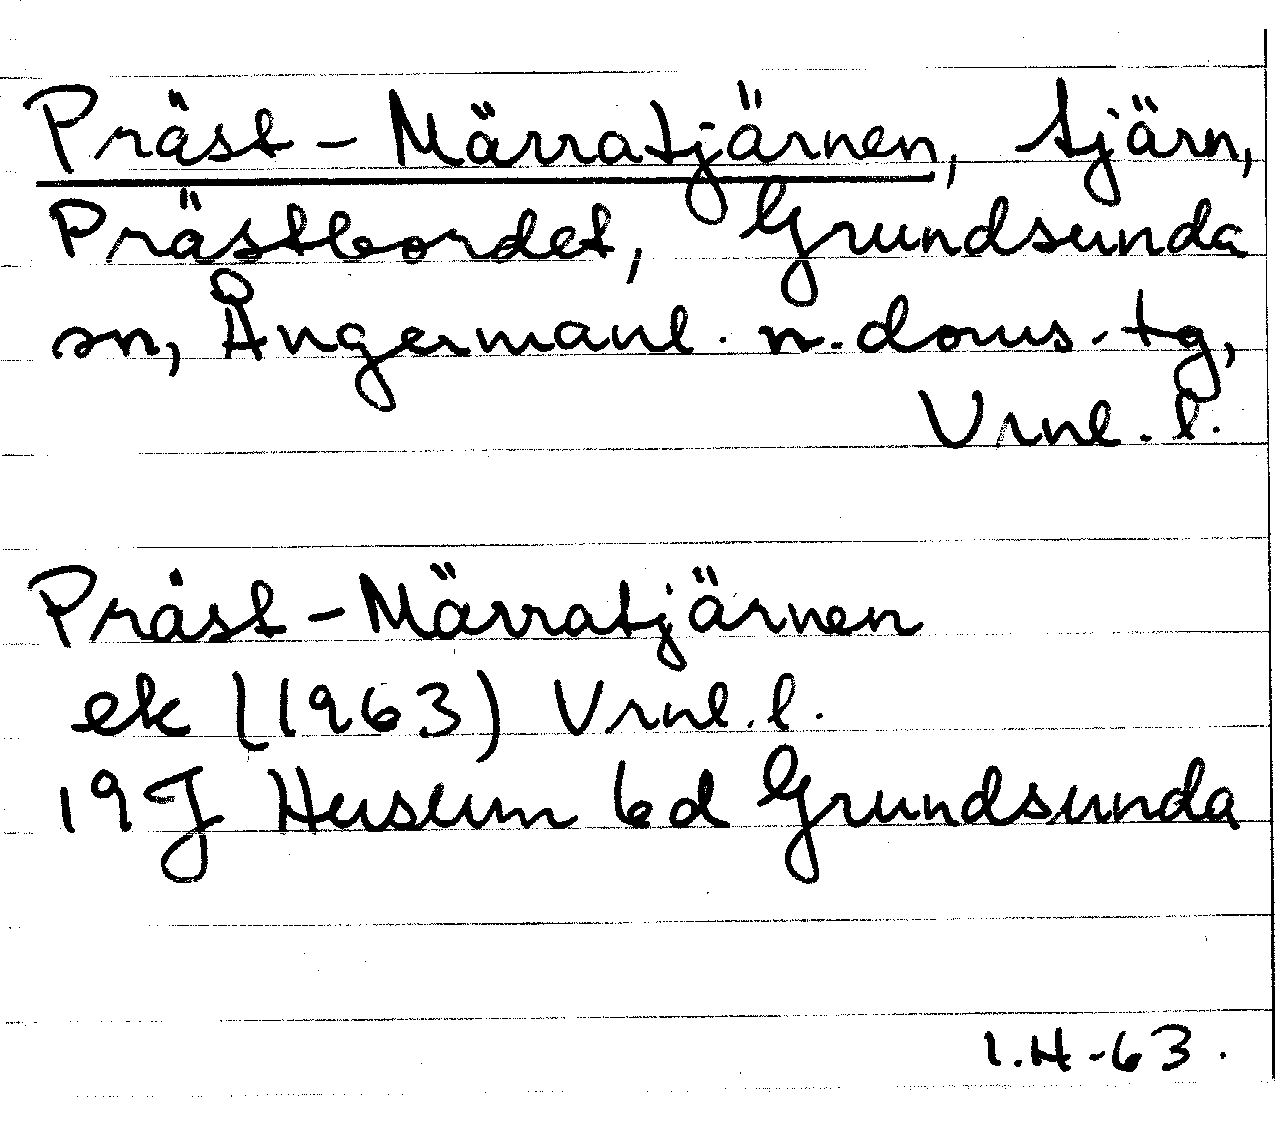 Präst-Märratjärnen, tjärn,
Prästbordet, Grundsunda
sn, Ångermanl. n. doms. tg,
Vrnl. l.
Präst-Märratjärnen
ek (1963) Vrnl. l.
19 J Husum 6d Grundsunda
I.H-63.